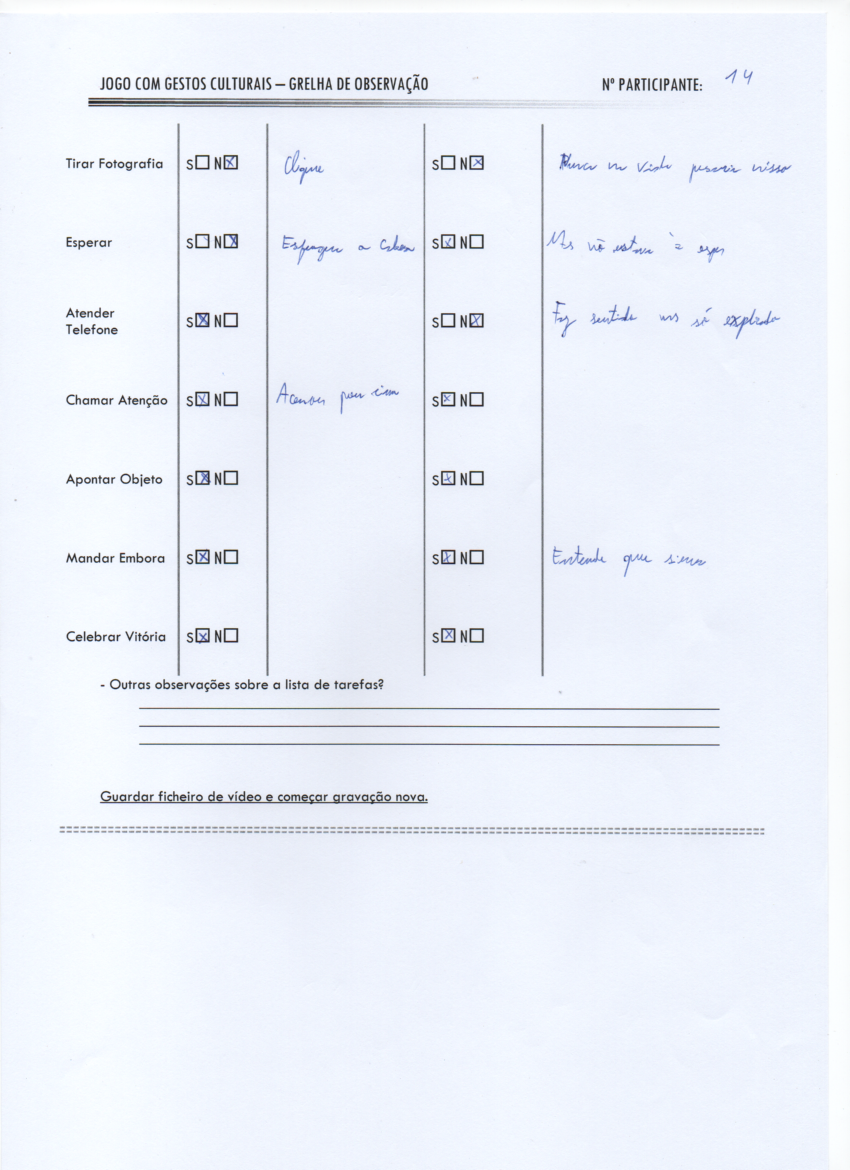 JOGO COM GESTOS CULTURAIS – GRELHA DE OBSERVAÇÃO Nº PARTICIPANTE: 14
Tirar Fotografia S N x Clique S N x Nunca me visto pensaria nisso
Esperar S N x a Cabeça S x N Mas não estava à espera
Atender
Telefone S x N S N x Faz sentido mas só explicado
Chamar Atenção S x N Acenou por cima S x N
Apontar Objeto S x N S x N
Mandar Embora S x N S x N Entende que sirva
Celebrar Vitória S x N S x N
- Outras observações sobre a lista de tarefas?
Guardar ficheiro de vídeo e começar gravação nova.